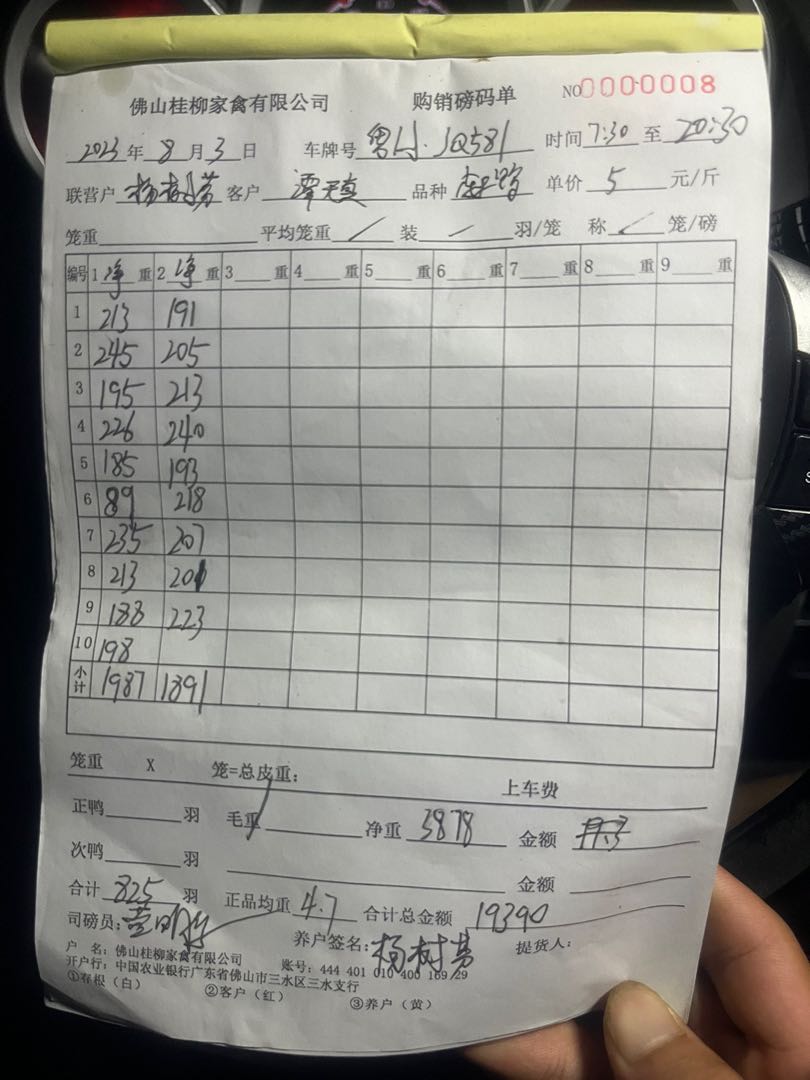 佛山桂柳家禽有限公司 购销磅码单 NO0000008
2023年8月3日 车牌号 粤 JQ581 时间7:30至20:30
联营户 杨树劳 客户 谭天真 品种 单价 5 元/斤
笼重 平均笼重 / 装 / 羽/笼 称 / 笼/磅
编号 1净重 2净重 3重 4重 5重 6重 7重 8重 9重
1 213 191
2 245 205
3 195 213
4 226 240
5 185 193
6 89 218
7 235 207
8 213 201
9 188 223
10 198
小计 1987 1891
笼重 X 笼=总皮重: 上车费
正鸭 羽 毛重 净重 3878 金额
次鸭 羽 金额
合计 825 羽 正品均重 4.7 合计总金额 19390
司磅员: 养户签名: 杨树劳 提货人:
户 名: 佛山桂柳家禽有限公司 账号: 444 401 010 400 169 29
开户行: 中国农业银行广东省佛山市三水区三水支行
①存根(白) ②客户(红) ③养户(黄)